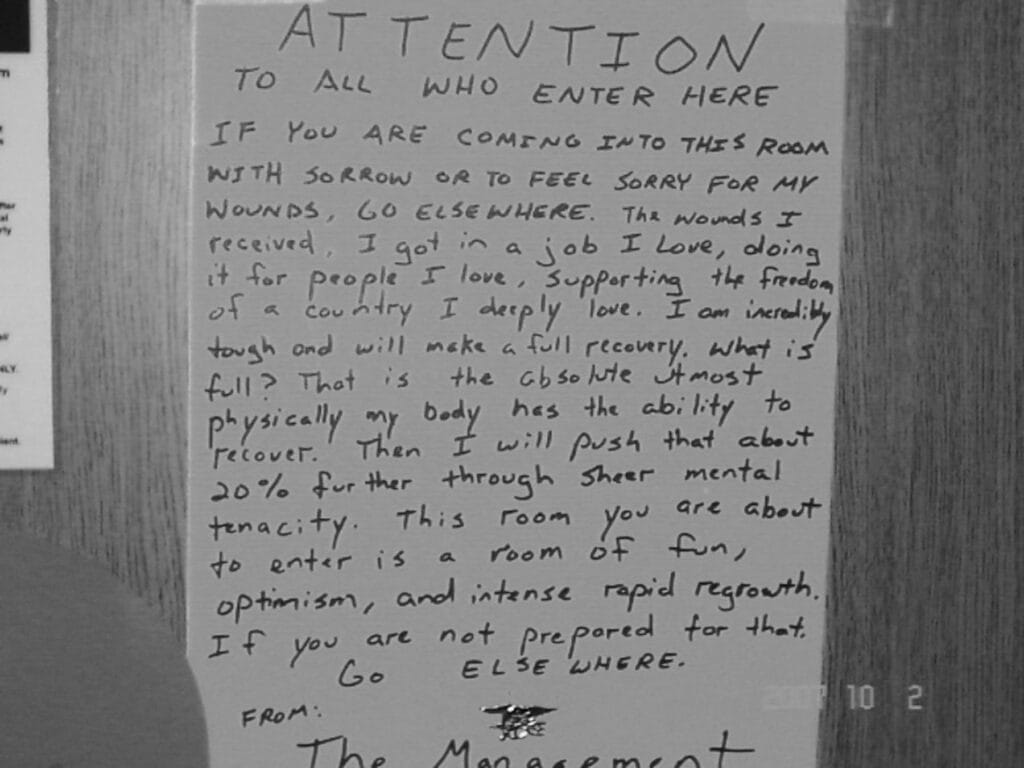 ATTENTION
TO ALL WHO ENTER HERE
IF YOU ARE COMING INTO THIS ROOM
WITH SORROW OR TO FEEL SORRY FOR MY
WOUNDS, GO ELSEWHERE. The wounds I
received, I got in a job I Love, doing
it for people I love, supporting the freedom
of a country I deeply love. I am incredibly
tough and will make a full recovery. What is
full? That is the absolute utmost
physically my body has the ability to
recover. Then I will push that about
20% further through sheer mental
tenacity. This room you are about
to enter is a room of fun,
optimism, and intense rapid regrowth.
If you are not prepared for that.
GO ELSEWHERE.
FROM:
The Management
10 2